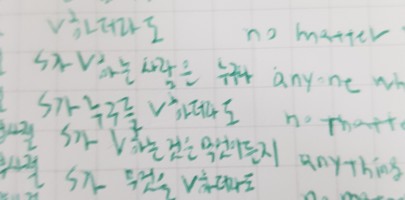 V하더라도 no matter
S가 V하는 사람은 누구나 anyone wh
S가 누구를 V하더라도 no matte
S가 V하는 것은 무엇이든지 anything
S가 무엇을 V하더라도